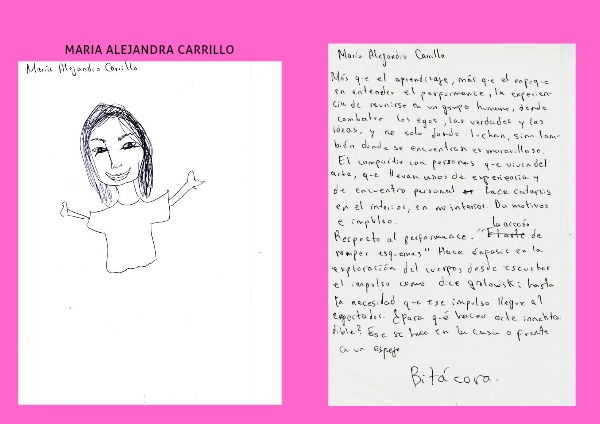 MARIA ALEJANDRA CARRILLO
María Alejandra Carrillo
María Alejandra Carrillo.
Más que el aprendizaje, más que el enfoque
en entender el performance, la experien-
cia de reunirse en un grupo humano, donde
combaten los egos, las verdades y las
ideas, y no solo donde luchan, sino tam-
bién donde se encuentran es maravilloso.
El compartir con personas que viven del
arte, que llevan unos de experiencia y
de encuentro personal hace catarsis
en el interior, en mi interior. Da motivos
e impulso.
la acción
Respecto al performance. "El arte de
romper esquemas" Hace énfasis en la
exploración del cuerpo, desde escuchar
el impulso como dice grotowski hasta
la necesidad que ese impulso llegue al
espectador. ¿para qué hacer arte inenten
dible? Ese se hace en tu casa o frente
a un espejo
Bitácora.